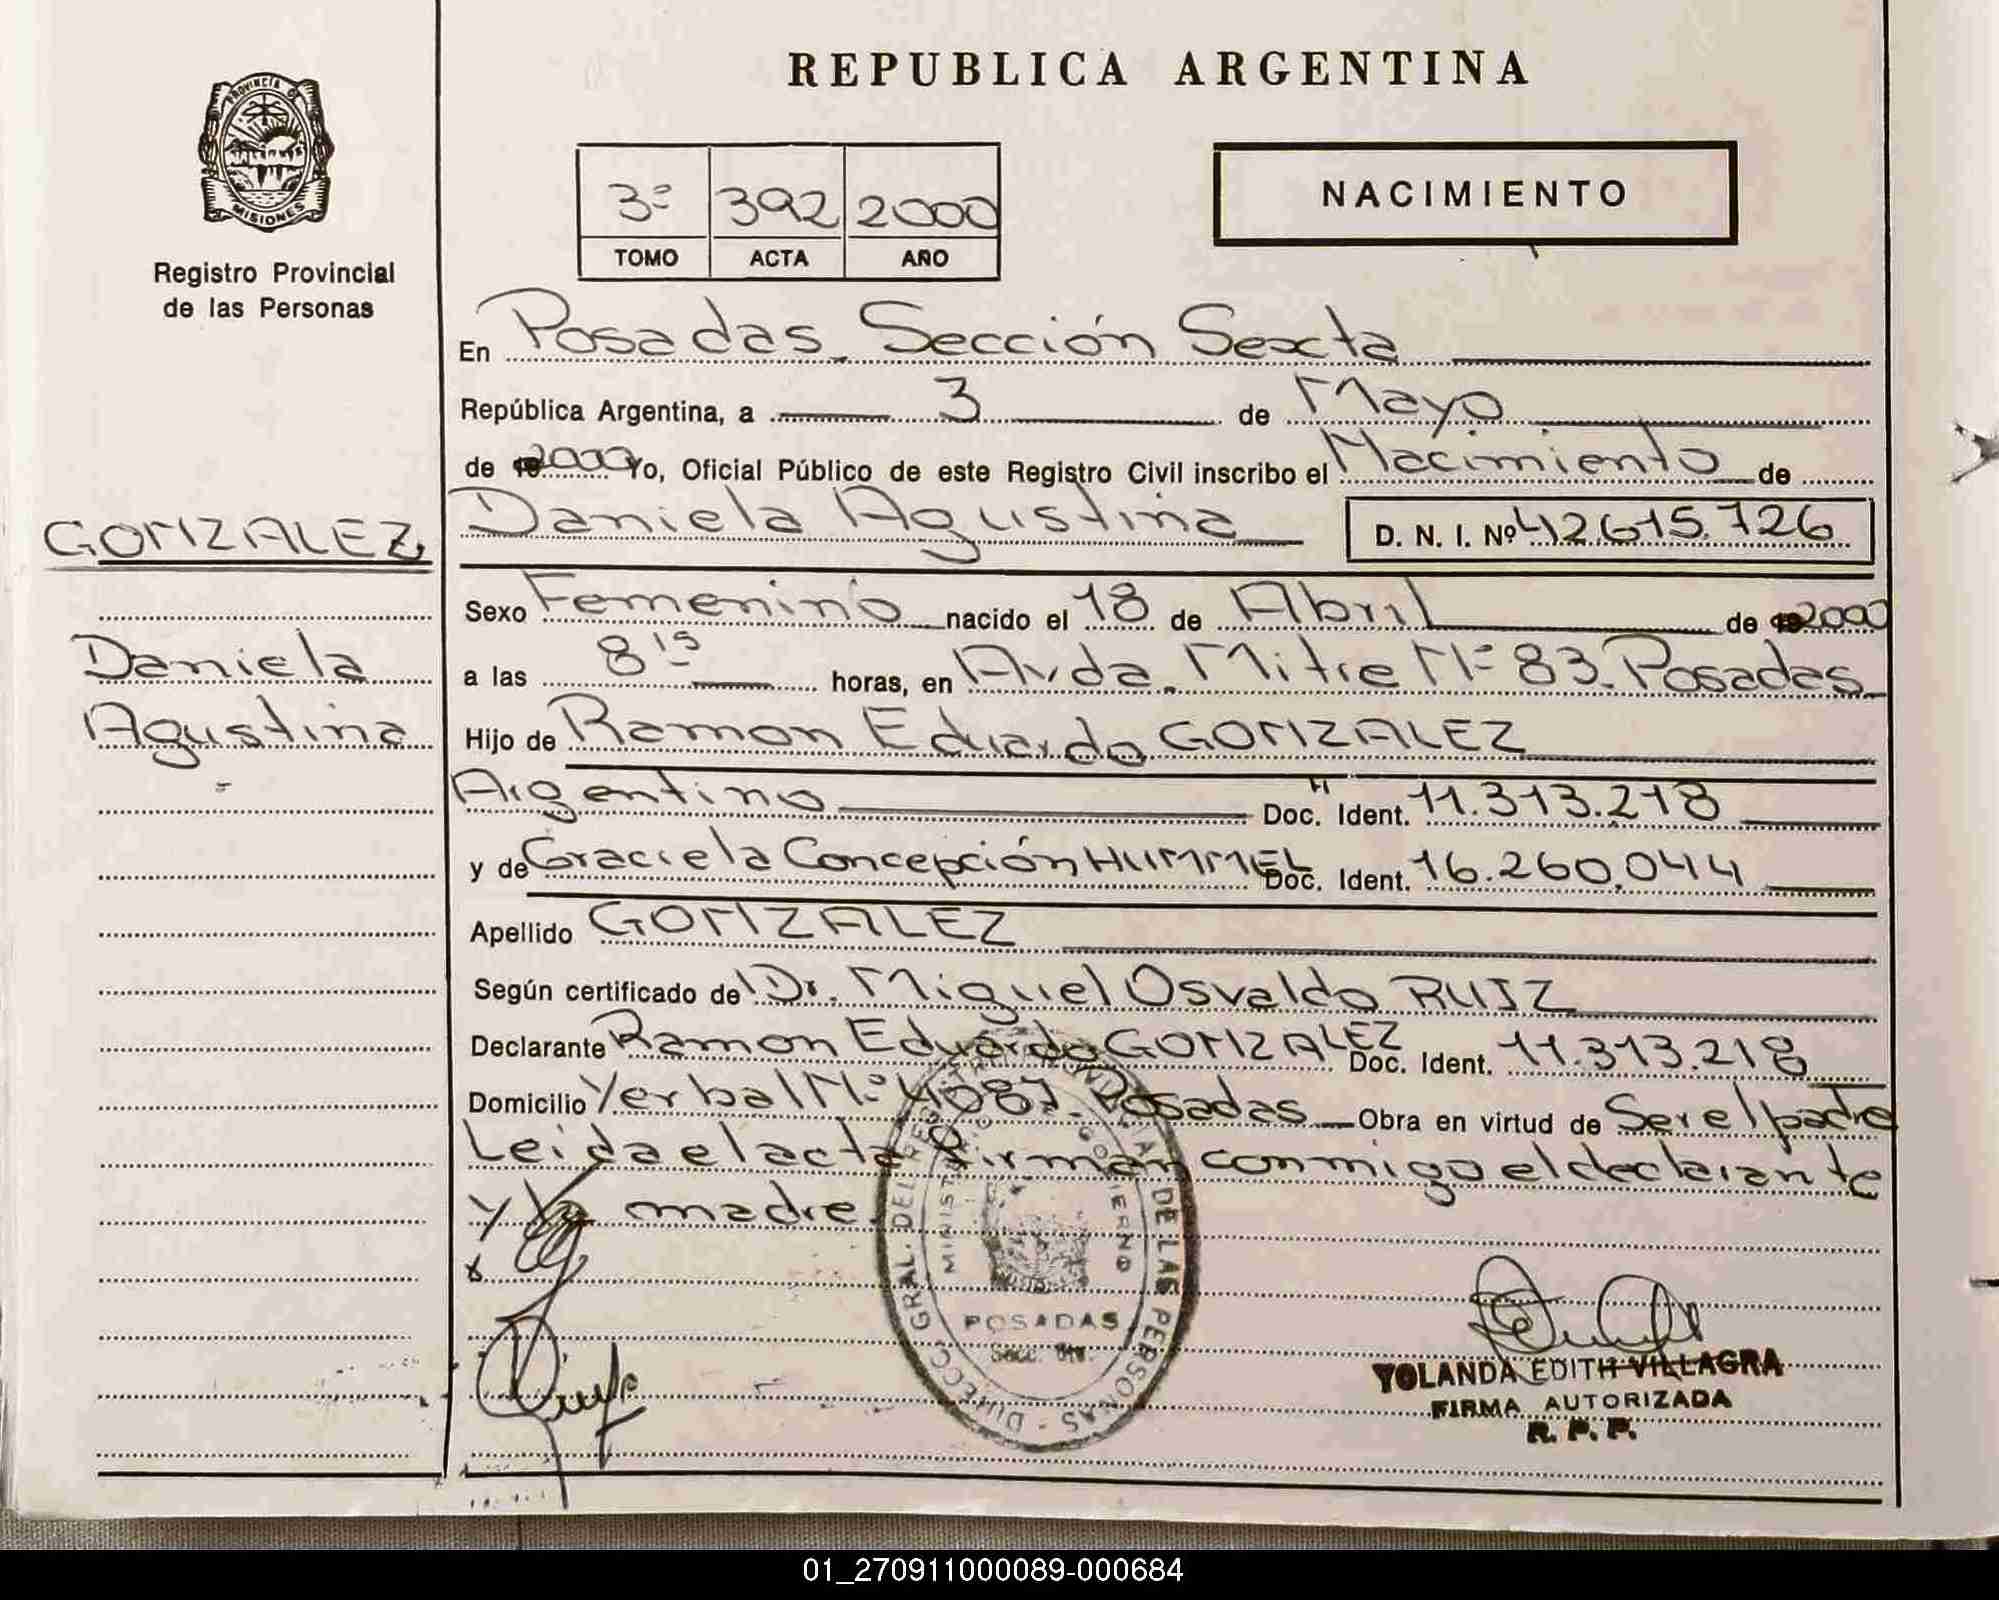 REPUBLICA ARGENTINA
PROVINCIA DE
MISIONES
Registro Provincial
de las Personas
3º 392 2000
TOMO ACTA AÑO
NACIMIENTO
En Posadas Sección Sexta
República Argentina, a 3 de Mayo
de 2000 Yo, Oficial Público de este Registro Civil inscribo el Nacimiento de
GONZALEZ
Daniela Agustina D. N. I. Nº 42.615.726
Sexo Femenino nacido el 18 de Abril de 2000
Daniela
a las 8 15 horas, en Avda. Mitre Nº 83. Posadas
Agustina
Hijo de Ramon Eduardo GONZALEZ
Argentino Doc. Ident. 11.313.218
y de Graciela Concepción HUMMEL Doc. Ident. 16.260.044
Apellido GONZALEZ
Según certificado de Dr. Miguel Osvaldo RUIZ
Declarante Ramon Eduardo GONZALEZ Doc. Ident. 11.313.218
Domicilio Yerbal Nº 4087. Posadas Obra en virtud de Ser el padre
Leida el acta firman conmigo el declarante
y la madre.
DIRECC. GRAL. DEL REGISTRO DE LAS PERSONAS
MINIST GOBIERNO
POSADAS
YOLANDA EDITH VILLAGRA
FIRMA AUTORIZADA
R. P. P.
01_270911000089-000684